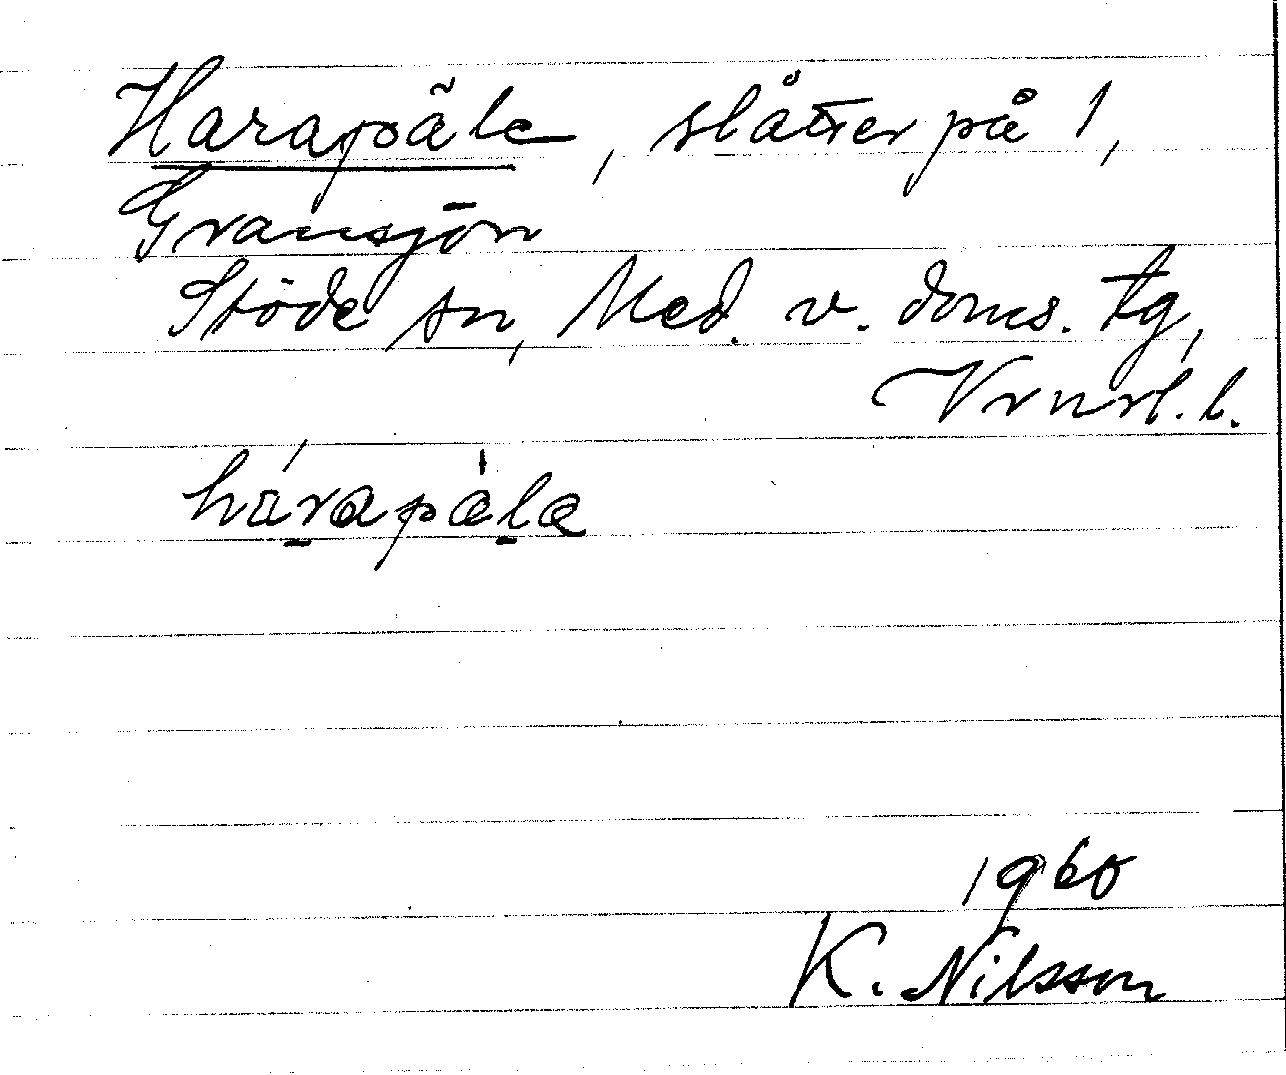 Harapåle, slåtter på 1,
Gransjön
Stöde sn, Med. v. doms. tg,
Vrnrl. l.
hárapåla
1960
K. Nilsson